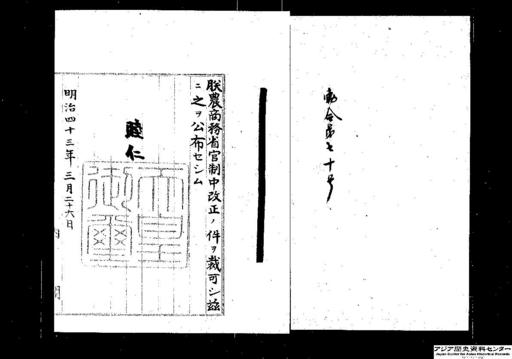 勅令第七十号
朕農商務省官制中改正ノ件ヲ裁可シ茲
ニ之ヲ公布セシム
睦仁
天皇
御璽
明治四十三年三月二十六日
アジア歴史資料センター
Japan Center for Asian Historical Records